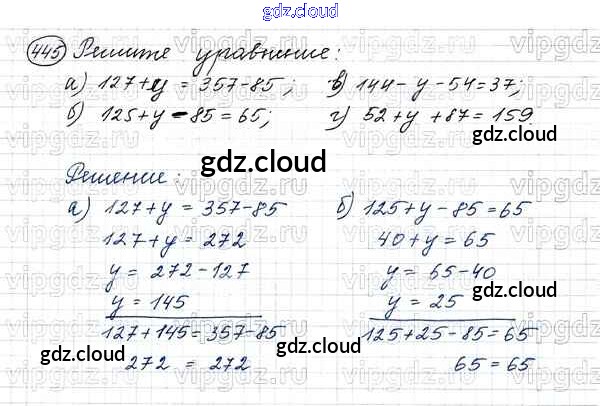 gdz.cloud
gdz.cloud
445 Решите уравнение:
а) 127+y = 357-85; в) 144-y-54=37;
б) 125+y-85=65; г) 52+y+87=159
gdz.cloud gdz.cloud
Решение:
а) 127+y = 357-85 б) 125+y-85=65
127+y = 272 40+y = 65
y = 272-127 y = 65-40
y = 145 y = 25
127+145=357-85 125+25-85=65
272 = 272 65 = 65
gdz.cloud gdz.cloud